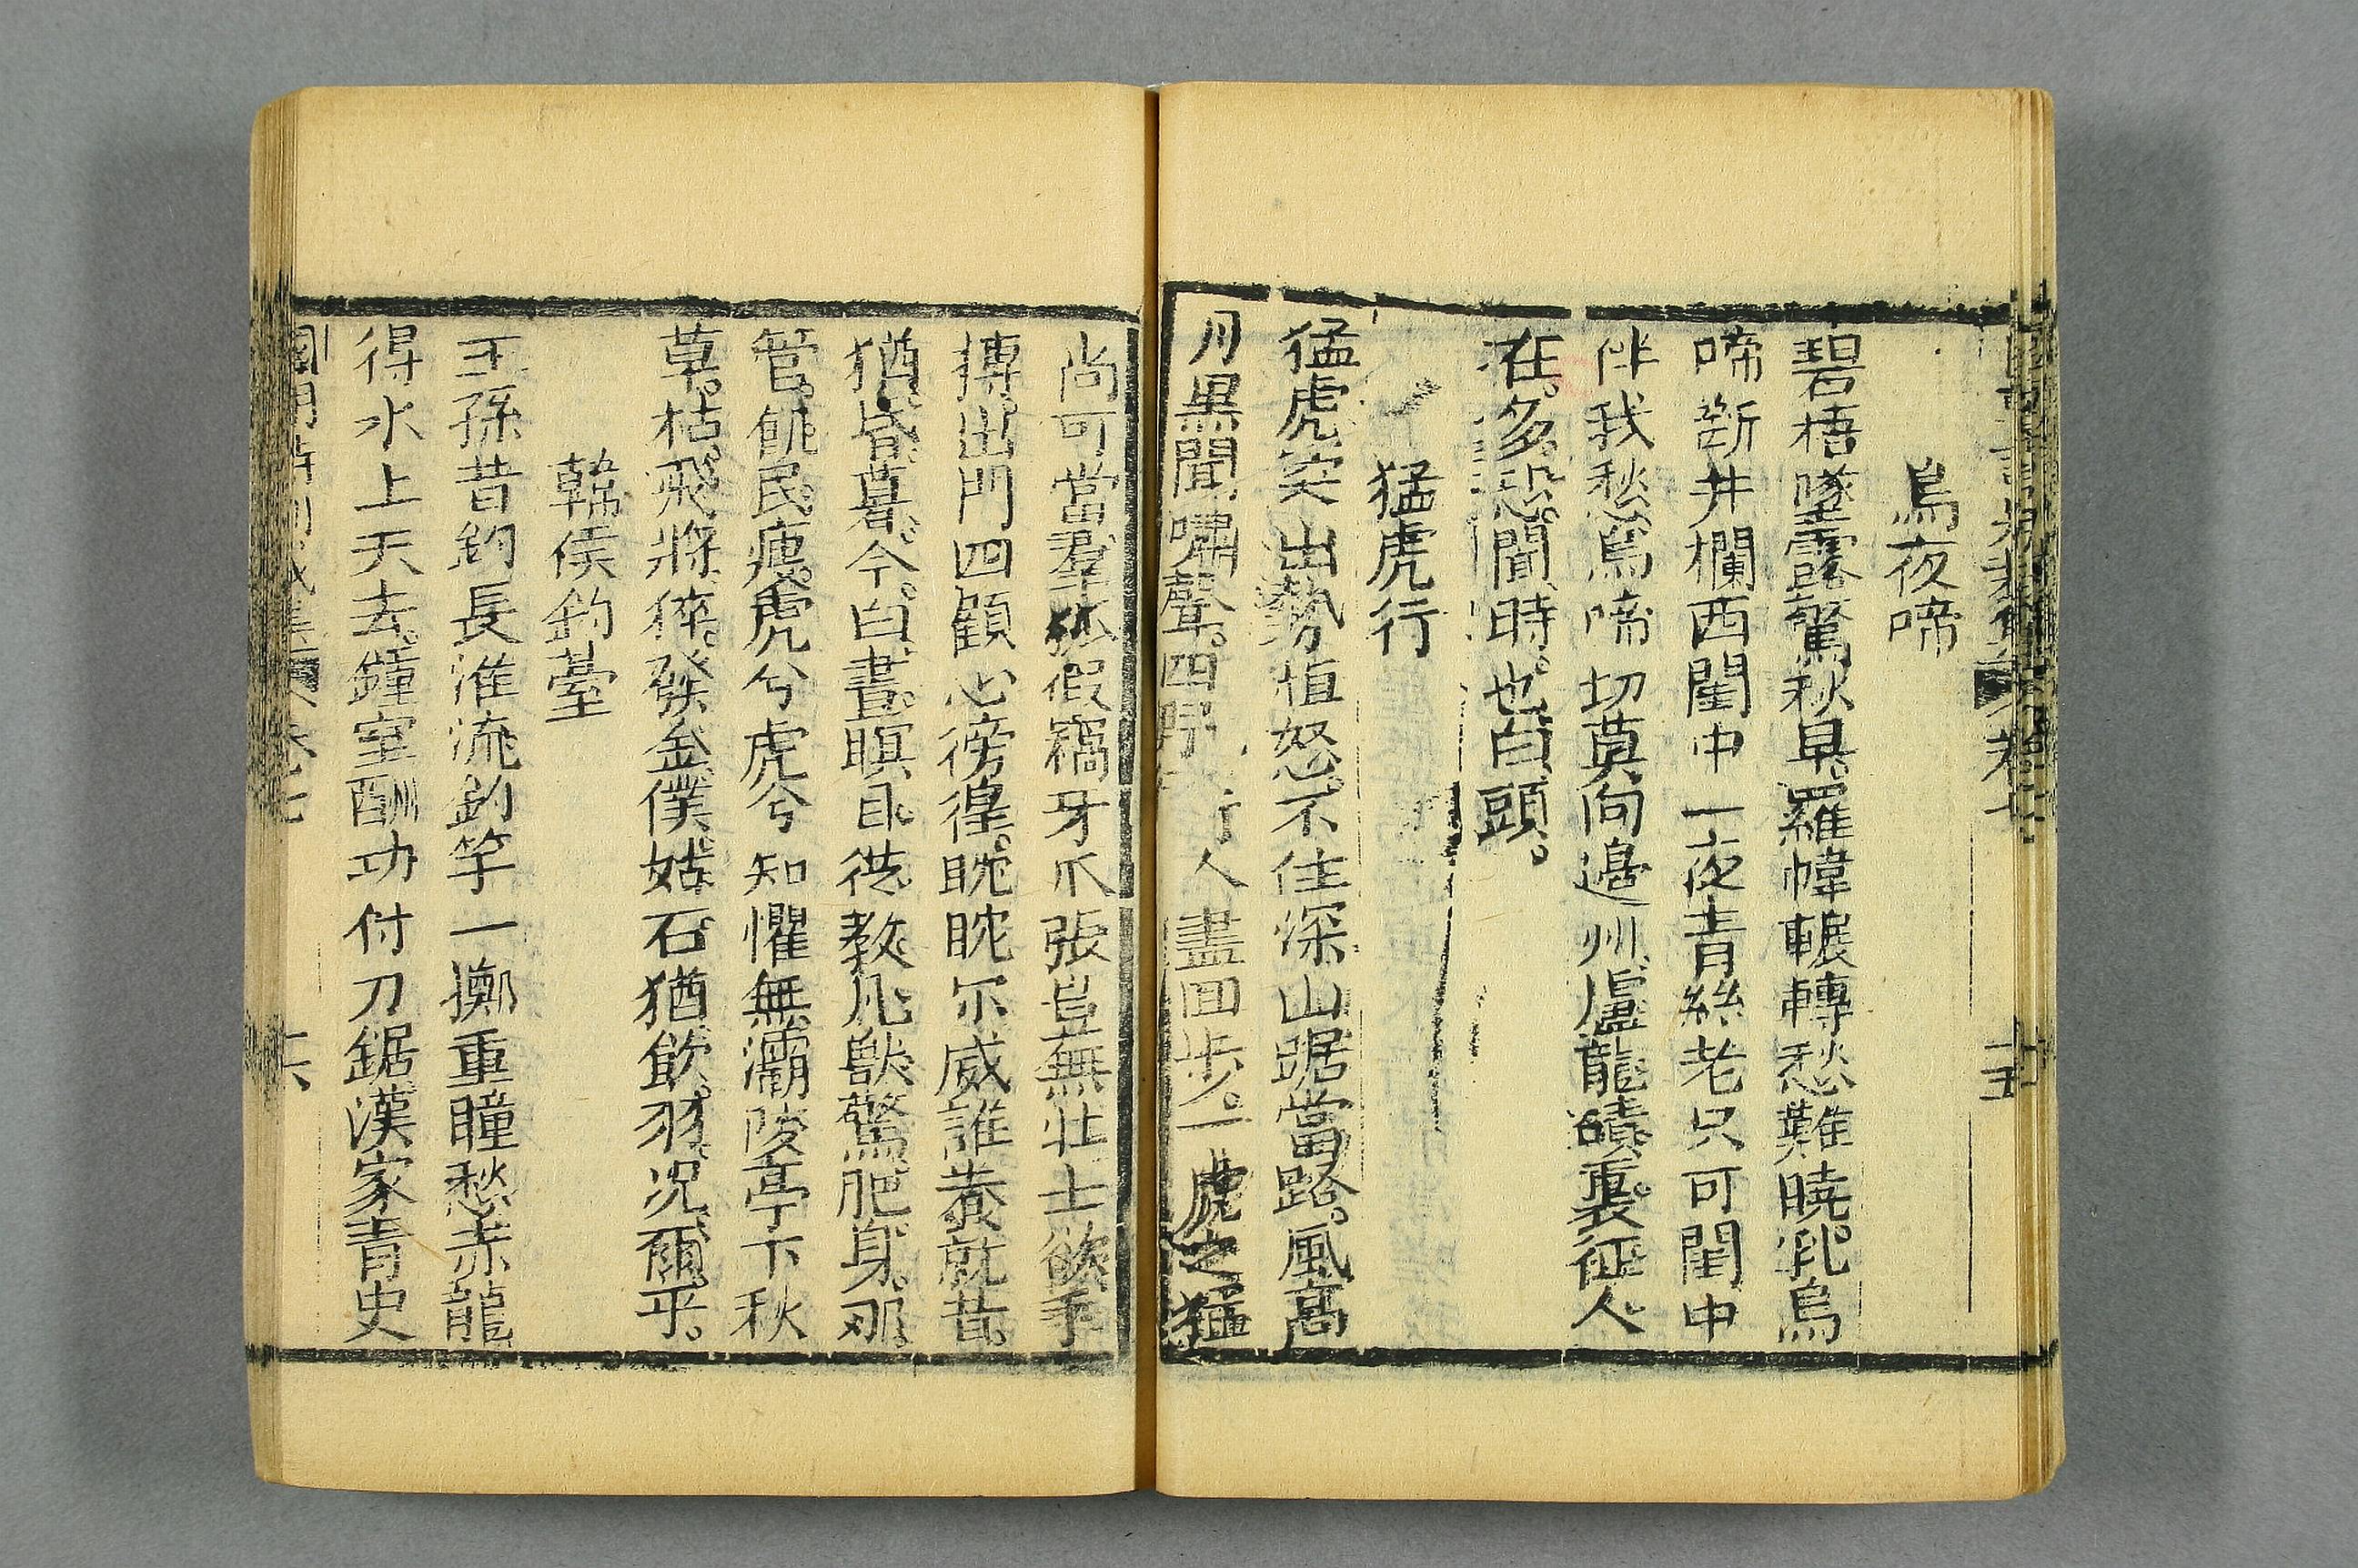 烏夜啼
碧梧墜露驚秋早。羅幃輾轉愁難曉。乳烏
啼斷井欄西閨中一夜青絲老只可閨中
伴我愁烏啼切莫向邊州。盧龍磧裏。征人
在。多恐。聞時也。白頭。
猛虎行
猛虎突出勢恒怒。不住深山踞當路。風高
月黑聞嘯聲。四 行人盡回步。一虎之猛
尚可當羣狐假竊牙爪張豈無壯士欲手
搏。出門四顧心徬徨。眈眈尔威誰養就昔。
猶。昏。暮。今。白。晝。瞑目。從。教。凡獸驚。肥身。那。
管。飢民瘦。虎兮虎兮知懼無灞陵亭下秋
草。枯。飛。將。猝。發。金。僕。姑。石。猶。飲。羽。况。爾。乎。
韓侯釣臺
王孫昔釣長淮流釣竿一擲重瞳愁赤龍
得水上天去。鐘室酬功付刀鋸漢家青史
十六
十五